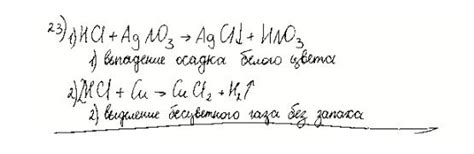 23) 1) HCl + AgNO3 → AgCl↓ + HNO3
1) выпадение осадка белого цвета
2) 2HCl + Cu → CuCl2 + H2↑
2) выделение бесцветного газа без запаха